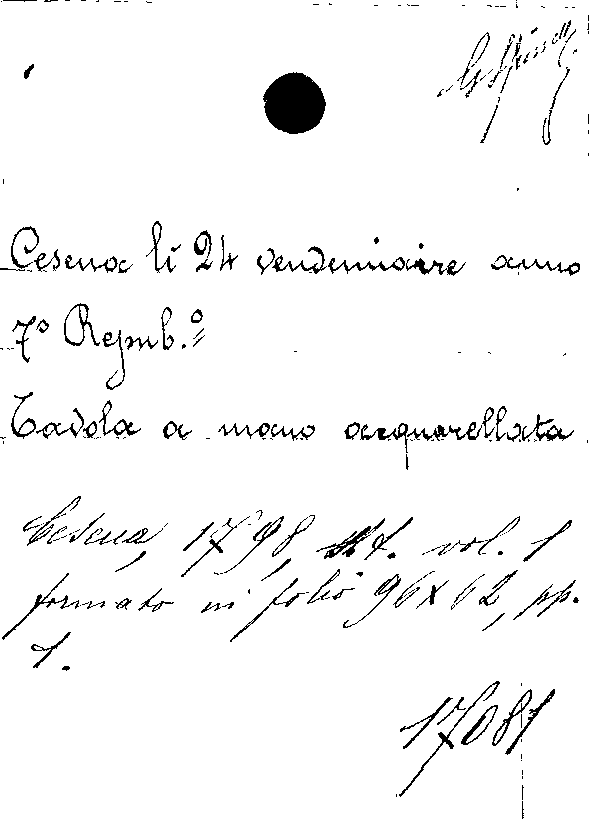 Cesena li 24 vendemiaire anno
7º Repub.º
Tavola a mano acquarellata
Cesena, 1798, st. vol. 1
formato in folio 96x62, pp.
1.
17081